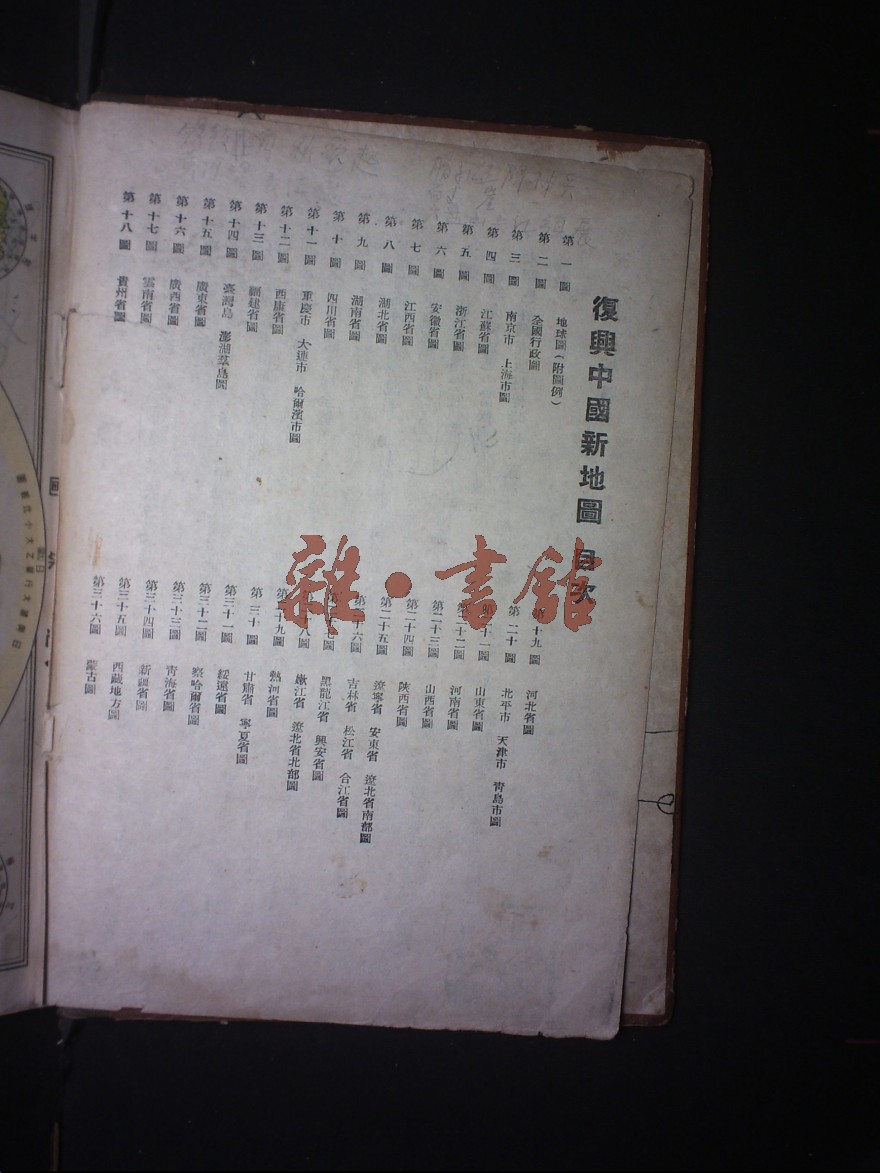 復興中國新地圖 目次
第一圖 地球圖(附圖例)
第二圖 全國行政圖
第三圖 南京市 上海市圖
第四圖 江蘇省圖
第五圖 浙江省圖
第六圖 安徽省圖
第七圖 江西省圖
第八圖 湖北省圖
第九圖 湖南省圖
第十圖 四川省圖
第十一圖 重慶市 大連市 哈爾濱市圖
第十二圖 西康省圖
第十三圖 福建省圖
第十四圖 臺灣島 澎湖羣島圖
第十五圖 廣東省圖
第十六圖 廣西省圖
第十七圖 雲南省圖
第十八圖 貴州省圖
第十九圖 河北省圖
第二十圖 北平市 天津市 青島市圖
十一圖 山東省圖
二十二圖 河南省圖
第二十三圖 山西省圖
第二十四圖 陝西省圖
第二十五圖 遼寧省 安東省 遼北省南部圖
十六圖 吉林省 松江省 合江省圖
七圖 黑龍江省 興安省圖
八圖 嫩江省 遼北省北部圖
十九圖 熱河省圖
第三十圖 甘肅省 寧夏省圖
第三十一圖 綏遠省圖
第三十二圖 察哈爾省圖
第三十三圖 青海省圖
第三十四圖 新疆省圖
第三十五圖 西藏地方圖
第三十六圖 蒙古圖
雜·書館